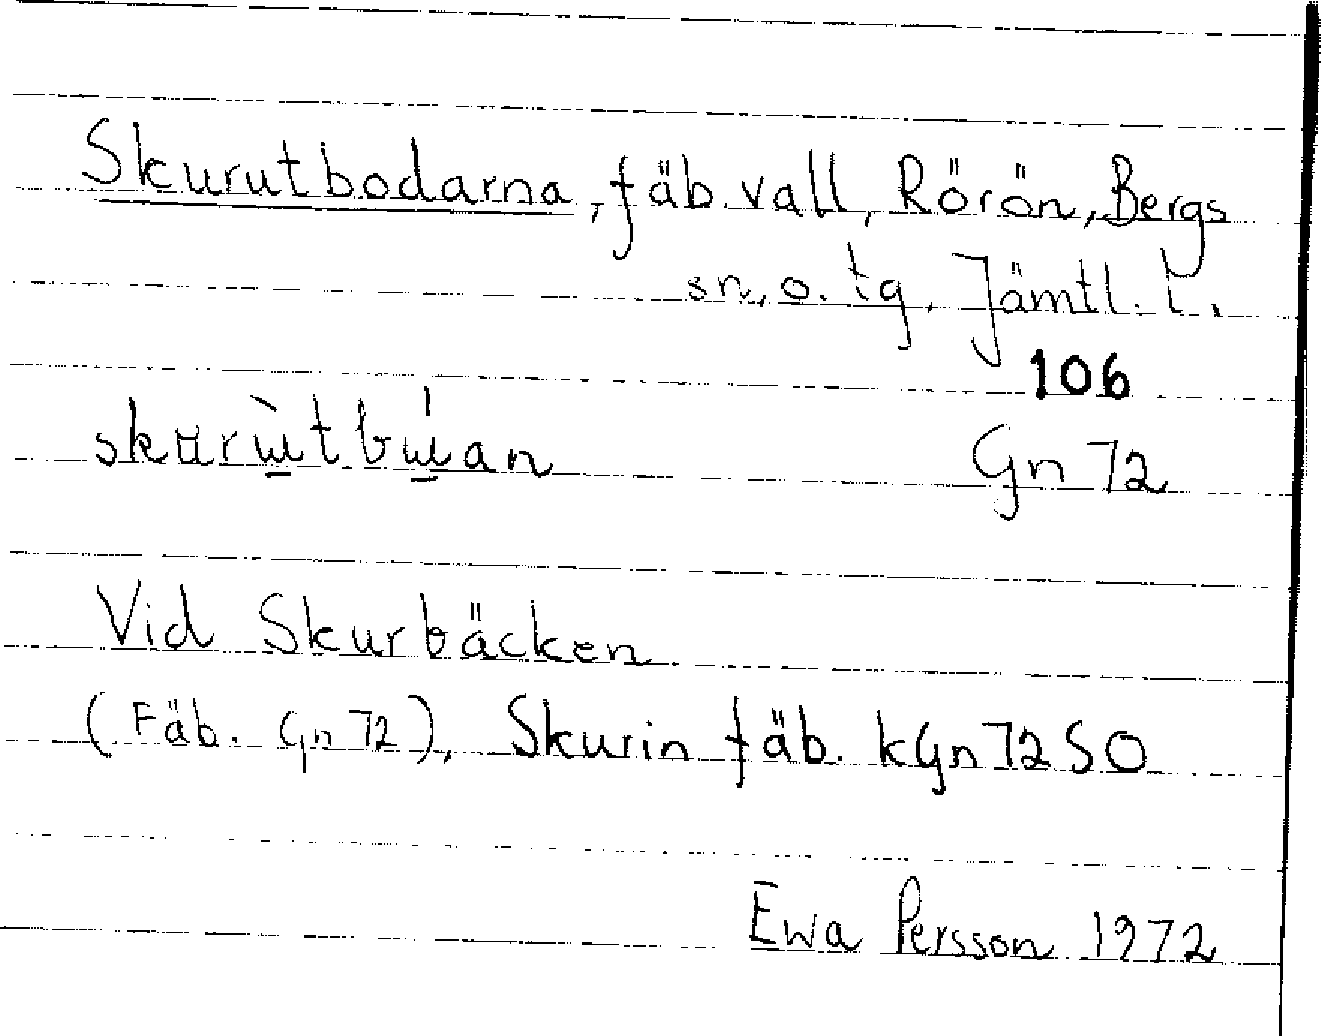 Skurutbodarna, fäb.vall, Rörön, Bergs
sn, o. tg. Jämtl. l.
106
Gn 72
Vid Skurbäcken
(Fäb. Gn 72), Skurin fäb. kGn 72 SO
Ewa Persson 1972